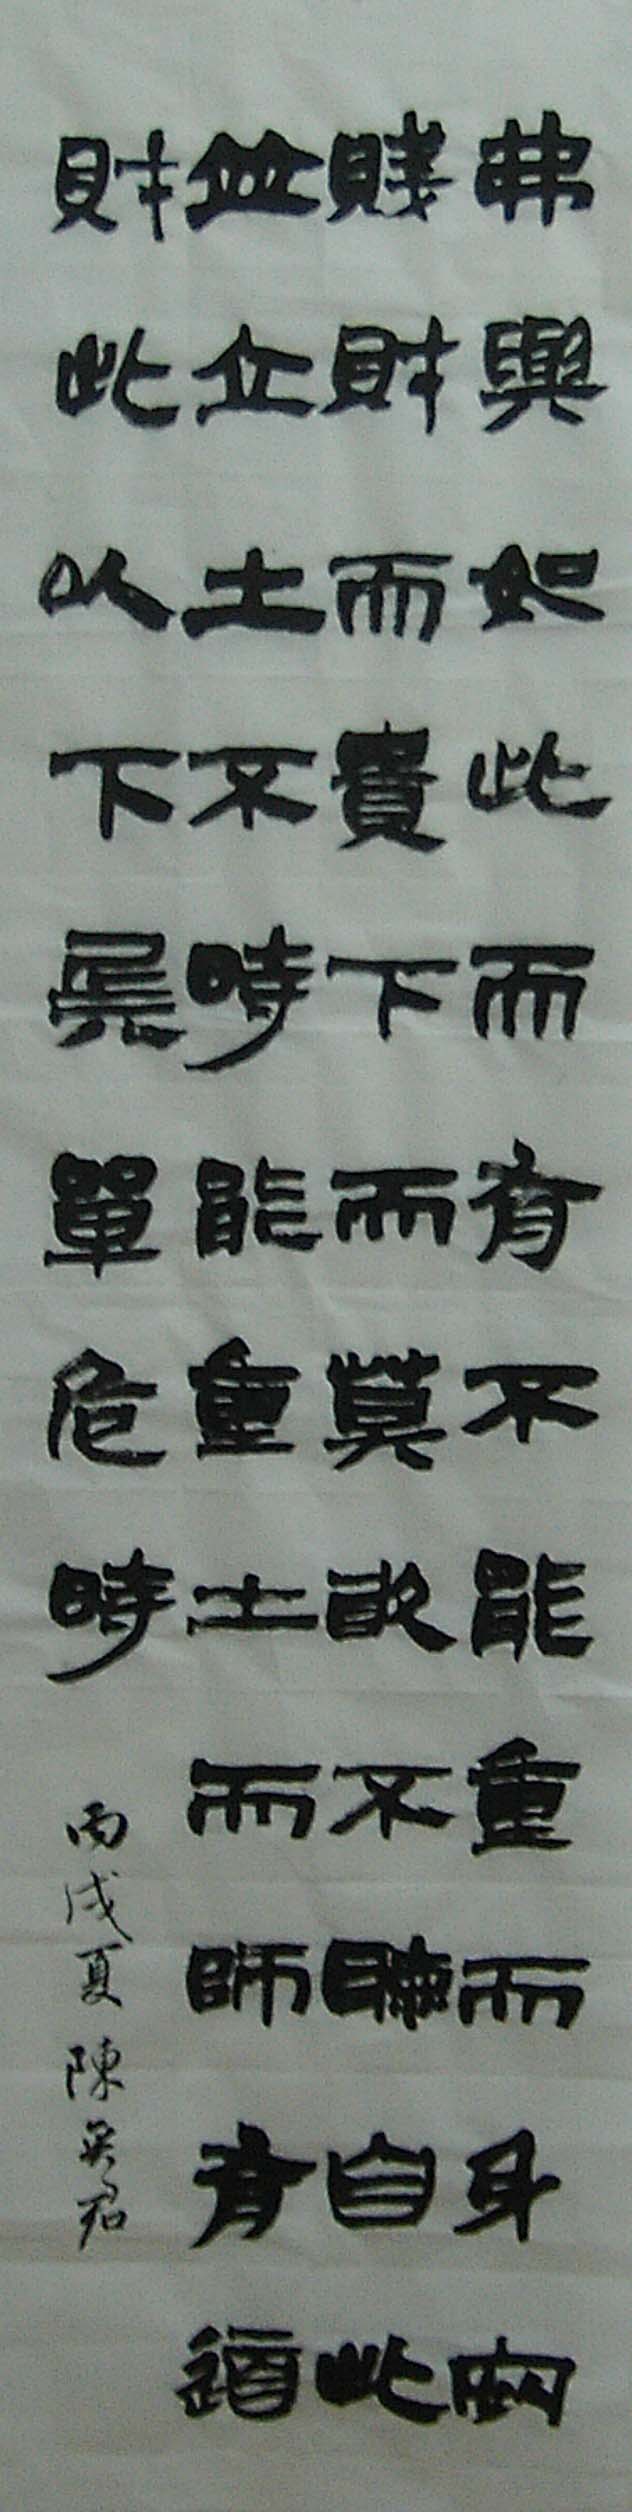 弗與如此而有不能重而身
賤財而貴下而莫敢不聽自此
並立土不時能重土而師有道
財此以下吳單危時
丙戌夏陳